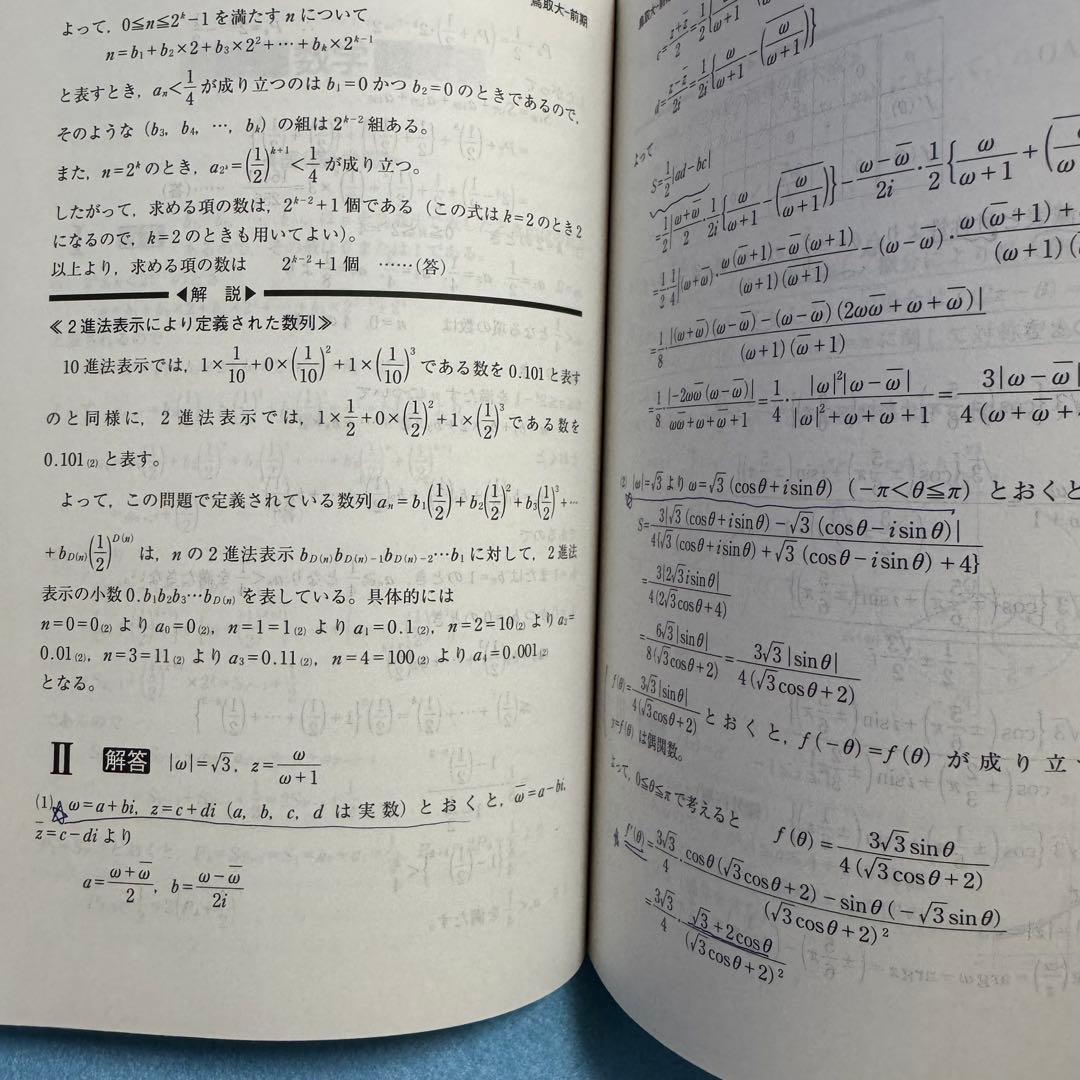 よって，0≦n≦2^k−1を満たす n について
n=b₁+b₂×2+b₃×2²+…+b_k×2^{k−1}
と表すとき，a_n<1/4 が成り立つのは b₁=0 かつ b₂=0 のときであるので，
そのような (b₃, b₄, …, b_k) の組は 2^{k−2} 組ある。
また，n=2^k のとき，a_{2^k}=(1/2)^{k+1}<1/4 が成り立つ。
したがって，求める項の数は，2^{k−2}+1 個である（この式は k=2 のとき 2
になるので，k=2 のときも用いてよい）。
以上より，求める項の数は 2^{k−2}+1 個 ……(答)
◀解 説▶
≪2進法表示により定義された数列≫
10進法表示では，1×1/10+0×(1/10)²+1×(1/10)³ である数を 0.101 と表す
のと同様に，2進法表示では，1×1/2+0×(1/2)²+1×(1/2)³ である数を
0.101₍₂₎ と表す。
よって，この問題で定義されている数列 a_n=b₁(1/2)+b₂(1/2)²+b₃(1/2)³+…
+b_{D(n)}(1/2)^{D(n)} は，n の2進法表示 b_{D(n)}b_{D(n)−1}b_{D(n)−2}…b₁ に対して，2進法
表示の小数 0.b₁b₂b₃…b_{D(n)} を表している。具体的には
n=0=0₍₂₎ より a₀=0₍₂₎，n=1=1₍₂₎ より a₁=0.1₍₂₎，n=2=10₍₂₎ より a₂=
0.01₍₂₎，n=3=11₍₂₎ より a₃=0.11₍₂₎，n=4=100₍₂₎ より a₄=0.001₍₂₎
となる。
Ⅱ 解答 |ω|=√3，z=ω/(ω+1)
(1) ☆ ω=a+bi，z=c+di (a, b, c, d は実数) とおくと，ω̅=a−bi，
z̅=c−di より
a=(ω+ω̅)/2，b=(ω−ω̅)/(2i)
鳥取大−前期
c=(z+z̅)/2=1/2{ω/(ω+1)+(ω/(ω+1))̅}
d=(z−z̅)/(2i)=1/(2i){ω/(ω+1)−(ω/(ω+1))̅}
よって
S=1/2|ad−bc|
=1/2|(ω+ω̅)/2・1/(2i){ω/(ω+1)−(ω/(ω+1))̅}−(ω−ω̅)/(2i)・1/2{ω/(ω+1)+(ω/
=1/2・1/4|(ω+ω̅)・(ω(ω̅+1)−ω̅(ω+1))/((ω+1)(ω̅+1))−(ω−ω̅)・(ω(ω̅+1)+
=1/8・|(ω+ω̅)(ω−ω̅)−(ω−ω̅)(2ωω̅+ω+ω̅)|/((ω+1)(ω̅+1))
=1/8・|−2ωω̅(ω−ω̅)|/(ωω̅+ω+ω̅+1)=1/4・|ω|²|ω−ω̅|/(|ω|²+ω+ω̅+1)=3|ω−ω̅|/(4(ω+ω̅+
(2) |ω|=√3 より ω=√3(cosθ+isinθ) (−π<θ≦π) とおくと
S=3|√3(cosθ+isinθ)−√3(cosθ−isinθ)|/(4{√3(cosθ+isinθ)+√3(cosθ−isinθ)+4})
=3|2√3isinθ|/(4(2√3cosθ+4))
=6√3|sinθ|/(8(√3cosθ+2))=3√3|sinθ|/(4(√3cosθ+2))
f(θ)=3√3|sinθ|/(4(√3cosθ+2)) とおくと，f(−θ)=f(θ) が成り立つ
y=f(θ) は偶関数。
よって，0≦θ≦π で考えると f(θ)=3√3sinθ/(4(√3cosθ+2))
☆ f′(θ)=3√3/4・(cosθ(√3cosθ+2)−sinθ(−√3sinθ))/(√3cosθ+2)²
=3√3/4・(√3+2cosθ)/(√3cosθ+2)²